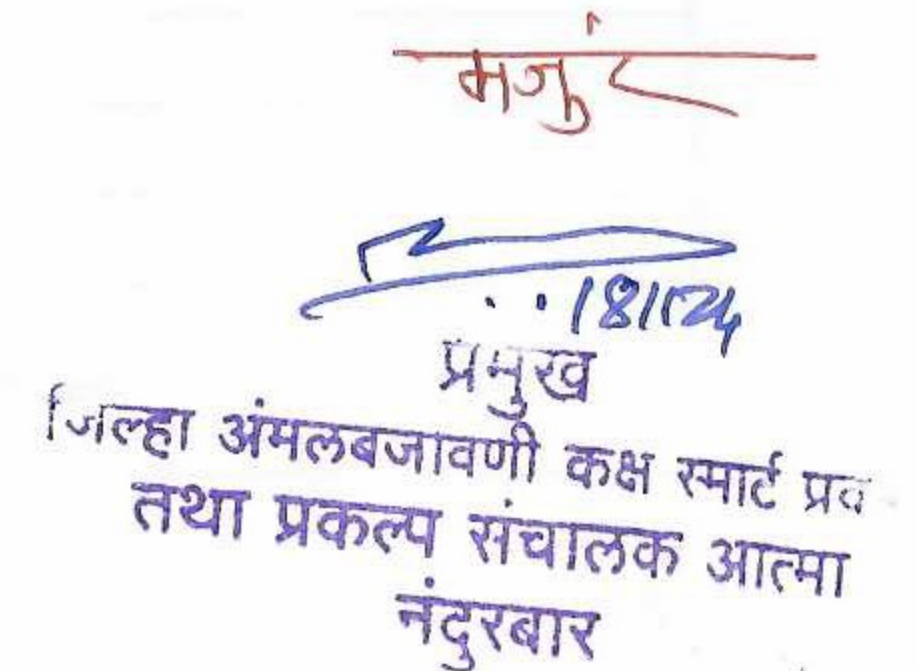 मजुंर
प्रमुख
जिल्हा अंमलबजावणी कक्ष स्मार्ट
तथा प्रकल्प संचालक आत्मा
नंदुरबार